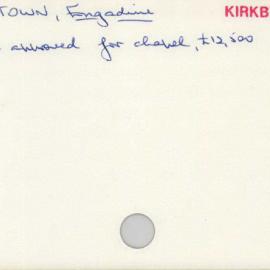 TOWN, Engadine KIRKB
approved for chapel, £12,500